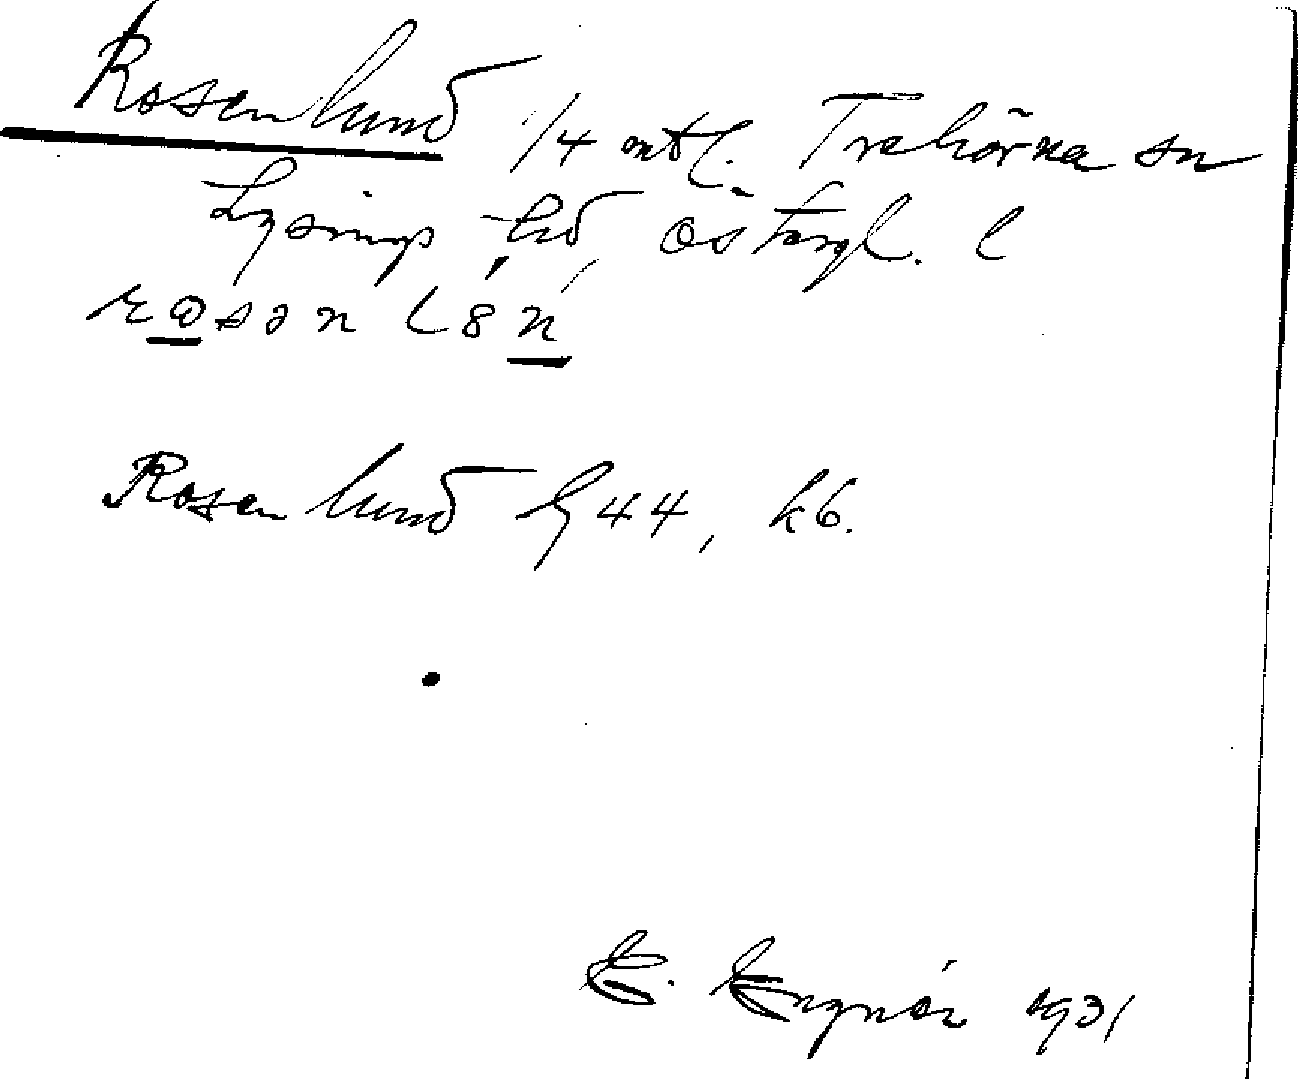 Rosenlund 1/4 mtl. Trehörna sn
Lysings hd, Östergl. l
Rosenlund hg 44, k6.
E. Engnér 1931